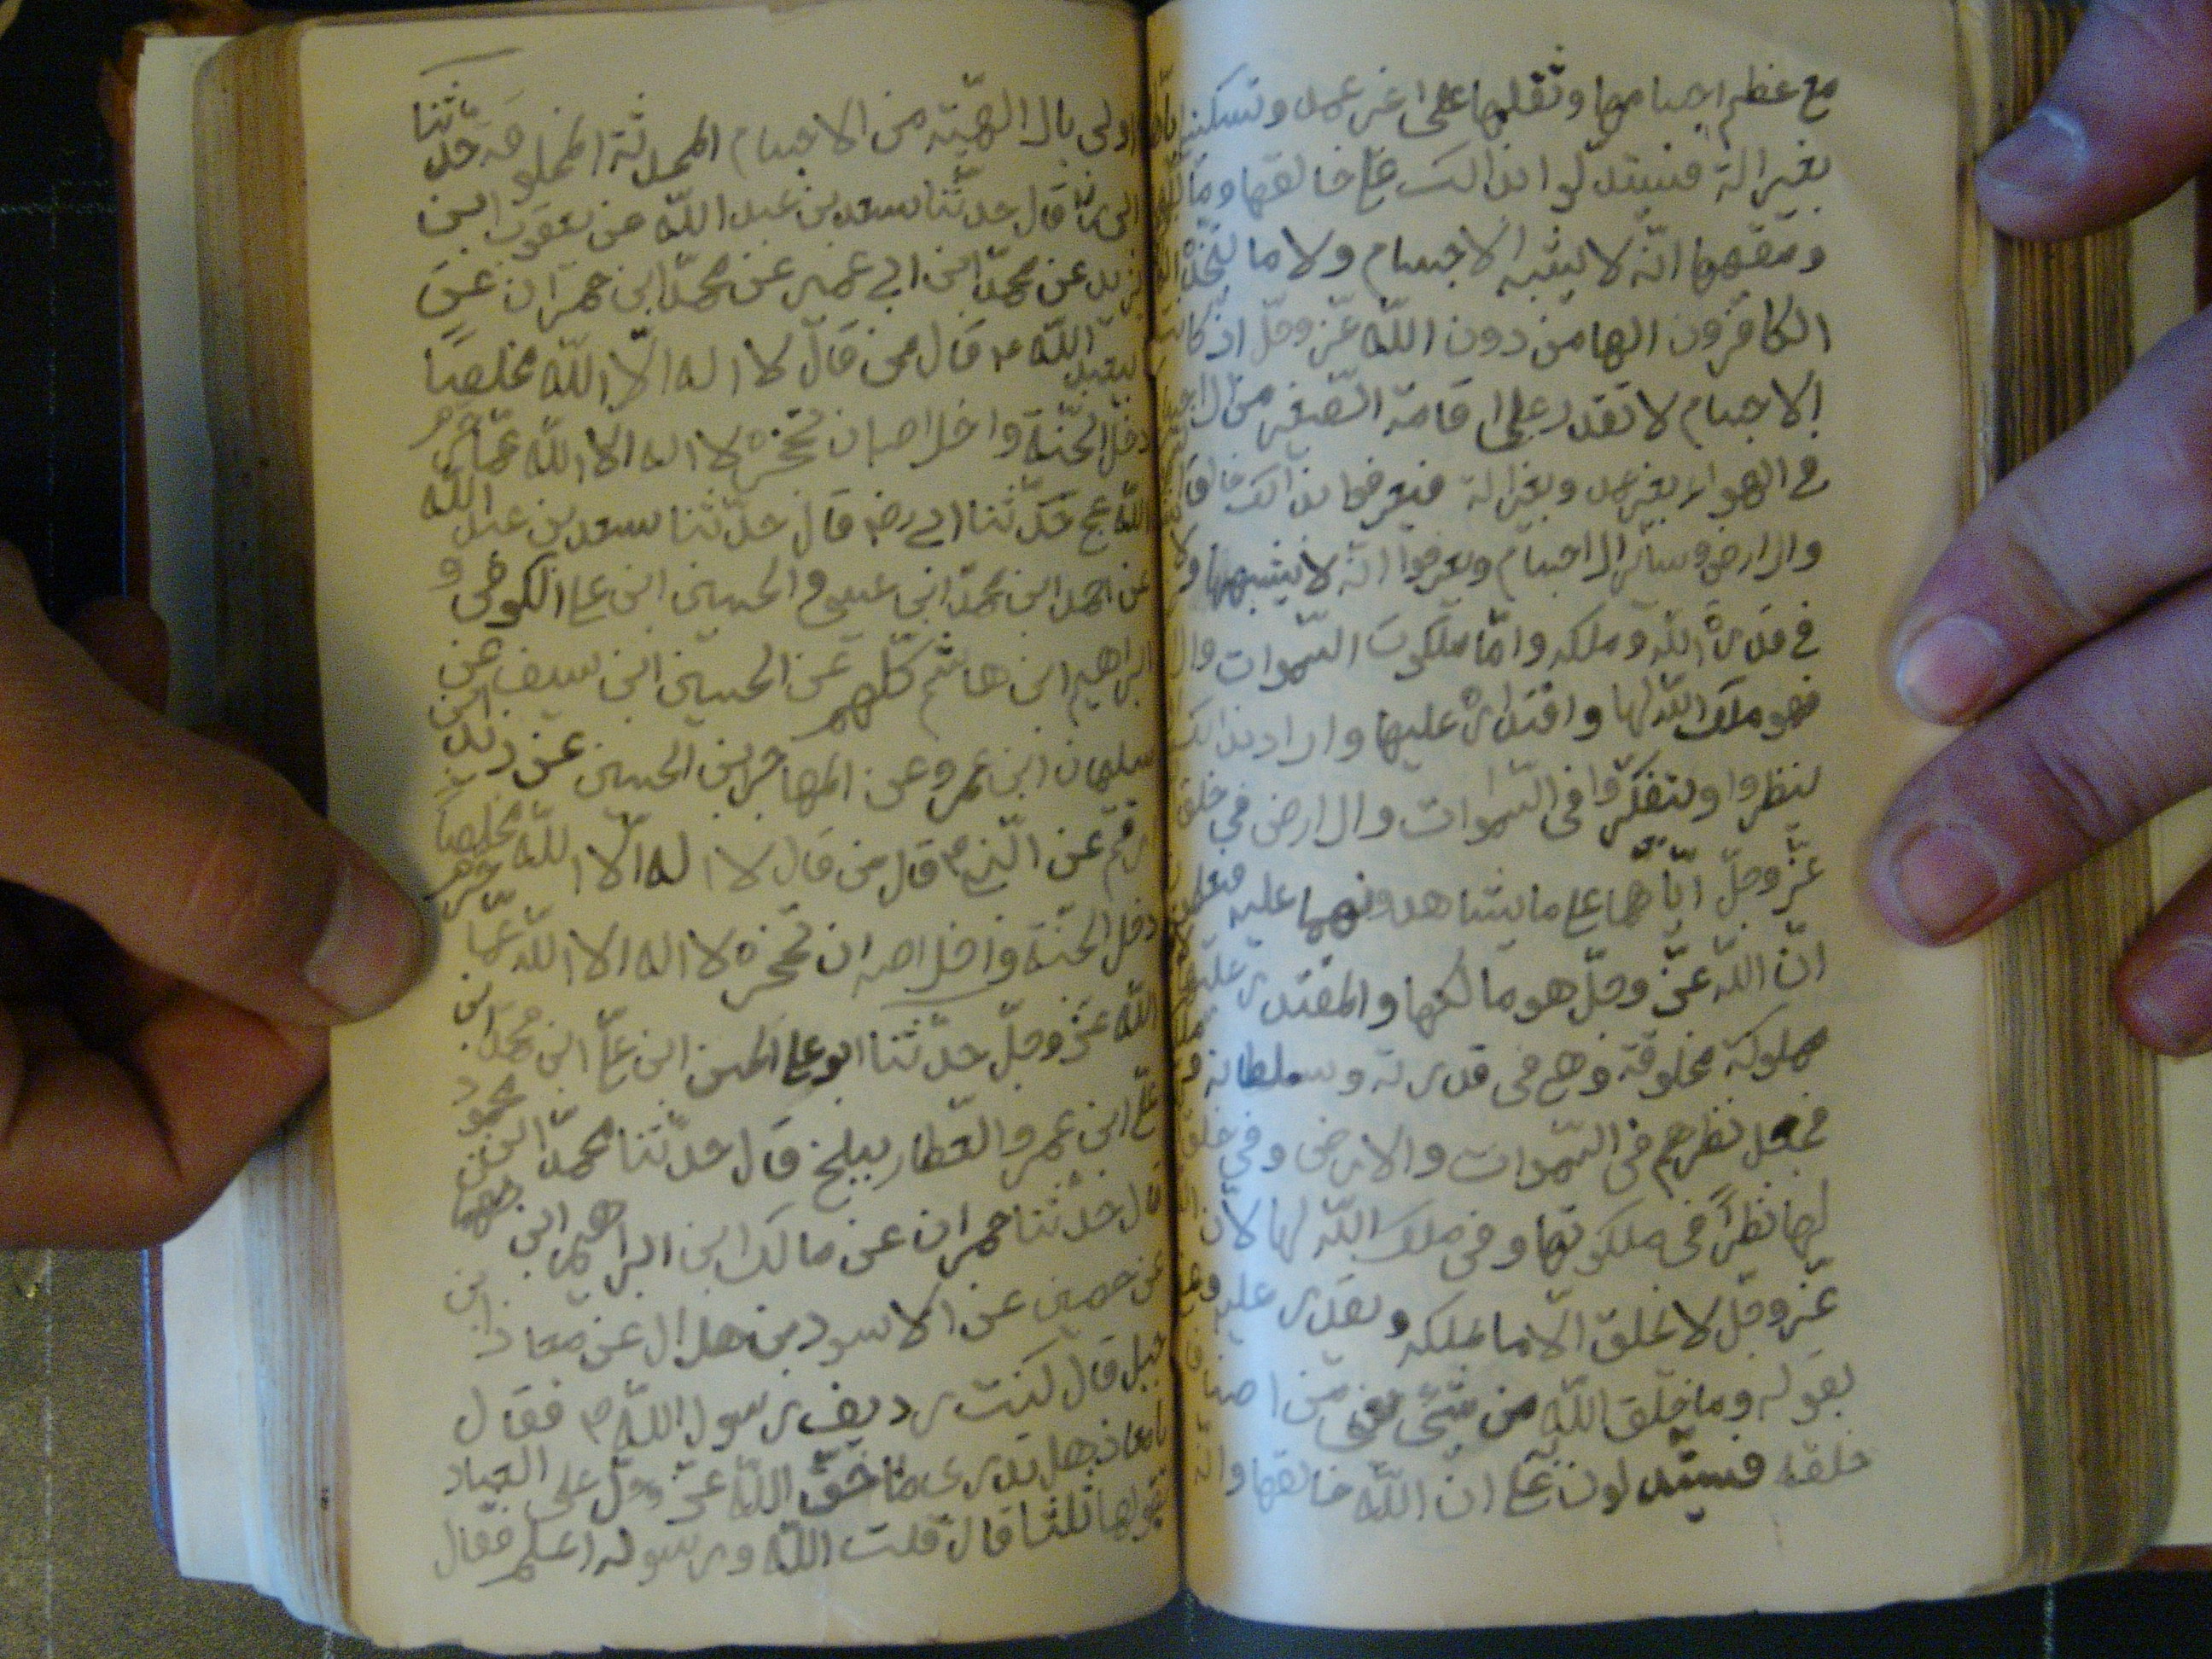 مع عظم اجسامها وثقلها على غير عمد وتسكينه
بغير الة فيستدلوا بذالك على خالقها ومالكها
ومقيمها انّه لا يشبه الاجسام ولا ما يتّخذ
الكافرون الها من دون اللّه عزّ وجلّ اذ كانت
الاجسام لا تقدر على اقامة الصّغير من الاجسام
فى الهواء بغير عمد وبغير الة فيعرفوا بذالك خالق
والارض وسائر الاجسام ويعرفوا انّه لا يشبهها ولا
فى قدرة اللّه وملكه وامّا ملكوت السّموات وال
فهو ملك اللّه لها واقتداره عليها واراد بذالك
ينظروا ويتفكّروا فى السّموات والارض فى خلق
عزّ وجلّ ايّاهما على ما يشاهدونهما عليه فيعلمون
انّ اللّه عزّ وجلّ هو مالكها والمقتدر عليها
مملوكة مخلوقة وهى فى قدرته وسلطانه و
فجعل نظرهم فى السّموات والارض وفى خلق
لها نظراً فى ملكوتها وفى ملك اللّه لها لانّ
عزّ وجلّ لا يخلق الّا ما يملكه ويقدر عليه وعنى
بقوله وما خلق اللّه من شىّ يعنى من اصناف
خلقه فيستدلون على انّ اللّه خالقها وانّه
اولى بالالهيّة من الاجسام المحدثة المخلوقة حدّثنا
ابى ره قال حدّثنا سعد بن عبد اللّه عن يعقوب ابن
يزيد عن محمّد ابن ابى عمير عن محمّد ابن حمران عن
ابيعبد اللّه ع قال من قال لا اله الّا اللّه مخلصاً
دخل الجنّة واخلاصه ان تحجزه لا اله الا اللّه عمّا حرم
اللّه عج حدّثنا ابى رضه قال حدّثنا سعد بن عبد اللّه
عن احمد ابن محمّد ابن عيسى والحسين ابن على الكوفى و
ابراهيم ابن هاشم كلّهم عن الحسين ابن سيف عن
سليمان ابن عمرو عن المهاجر بن الحسين عن زيد ابن
ارقم عن النّبى ص قال من قال لا اله الّا اللّه مخلصاً
دخل الجنّة واخلاصه ان تحجزه لا اله الا اللّه عمّا حرّم
اللّه عزّ وجلّ حدّثنا ابو على الحسن ابن علىّ ابن محمّد ابن
علىّ ابن عمرو العطّار ببلخ قال حدّثنا محمّد ابن محمود
قال حدّثنا حمران عن مالك ابن ابراهيم ابن
عن حصين عن الاسود بن هلال عن معاذ ابن
جبل قال كنت رديف رسول اللّه ص فقال
يا معاذ هل تدرى ما حقّ اللّه عزّ وجلّ على العباد
يقولها ثلثا قال قلت اللّه ورسوله اعلم فقال